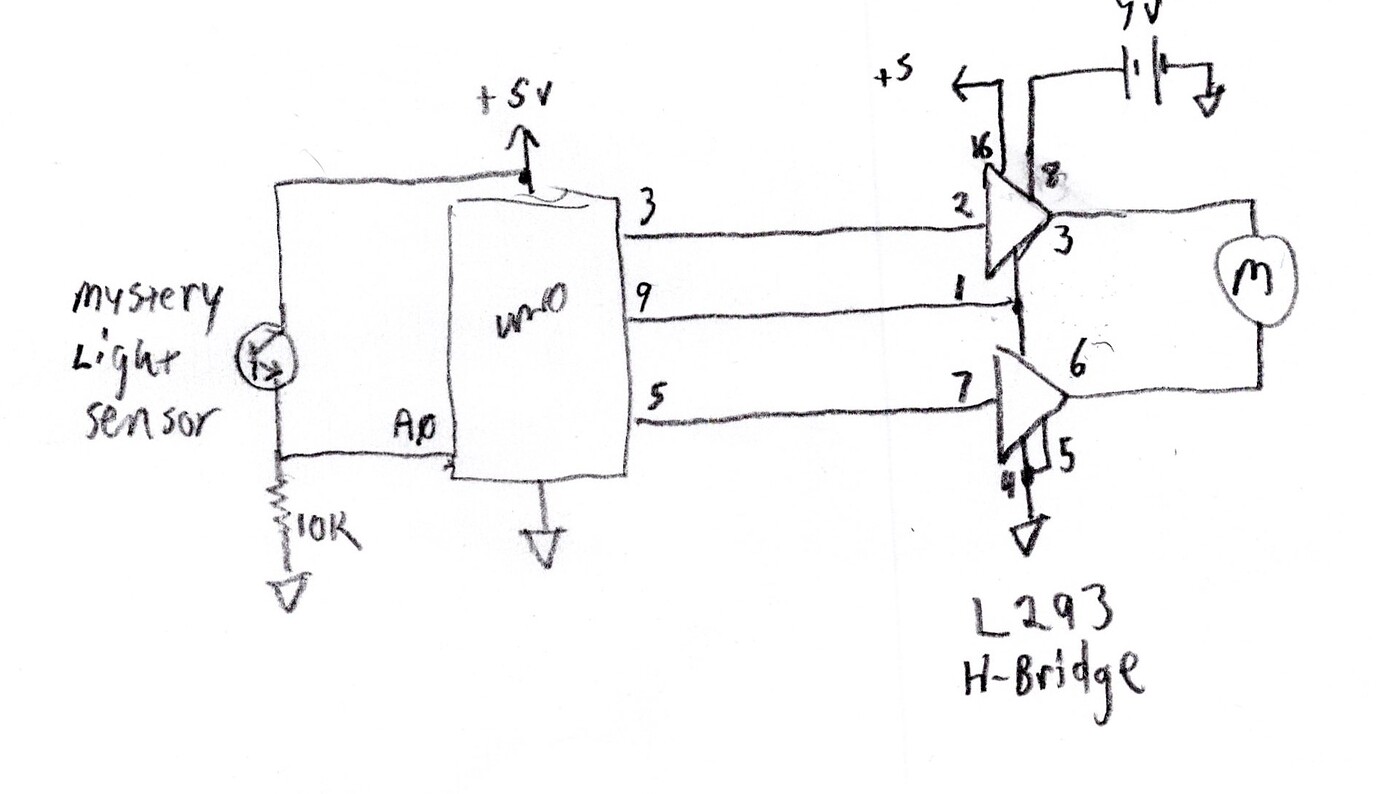 +5V
+5
16
8
3
2
3
mystery
Light
sensor
9
1
M
uno
5
7
6
A0
5
4
10K
L293
H-Bridge